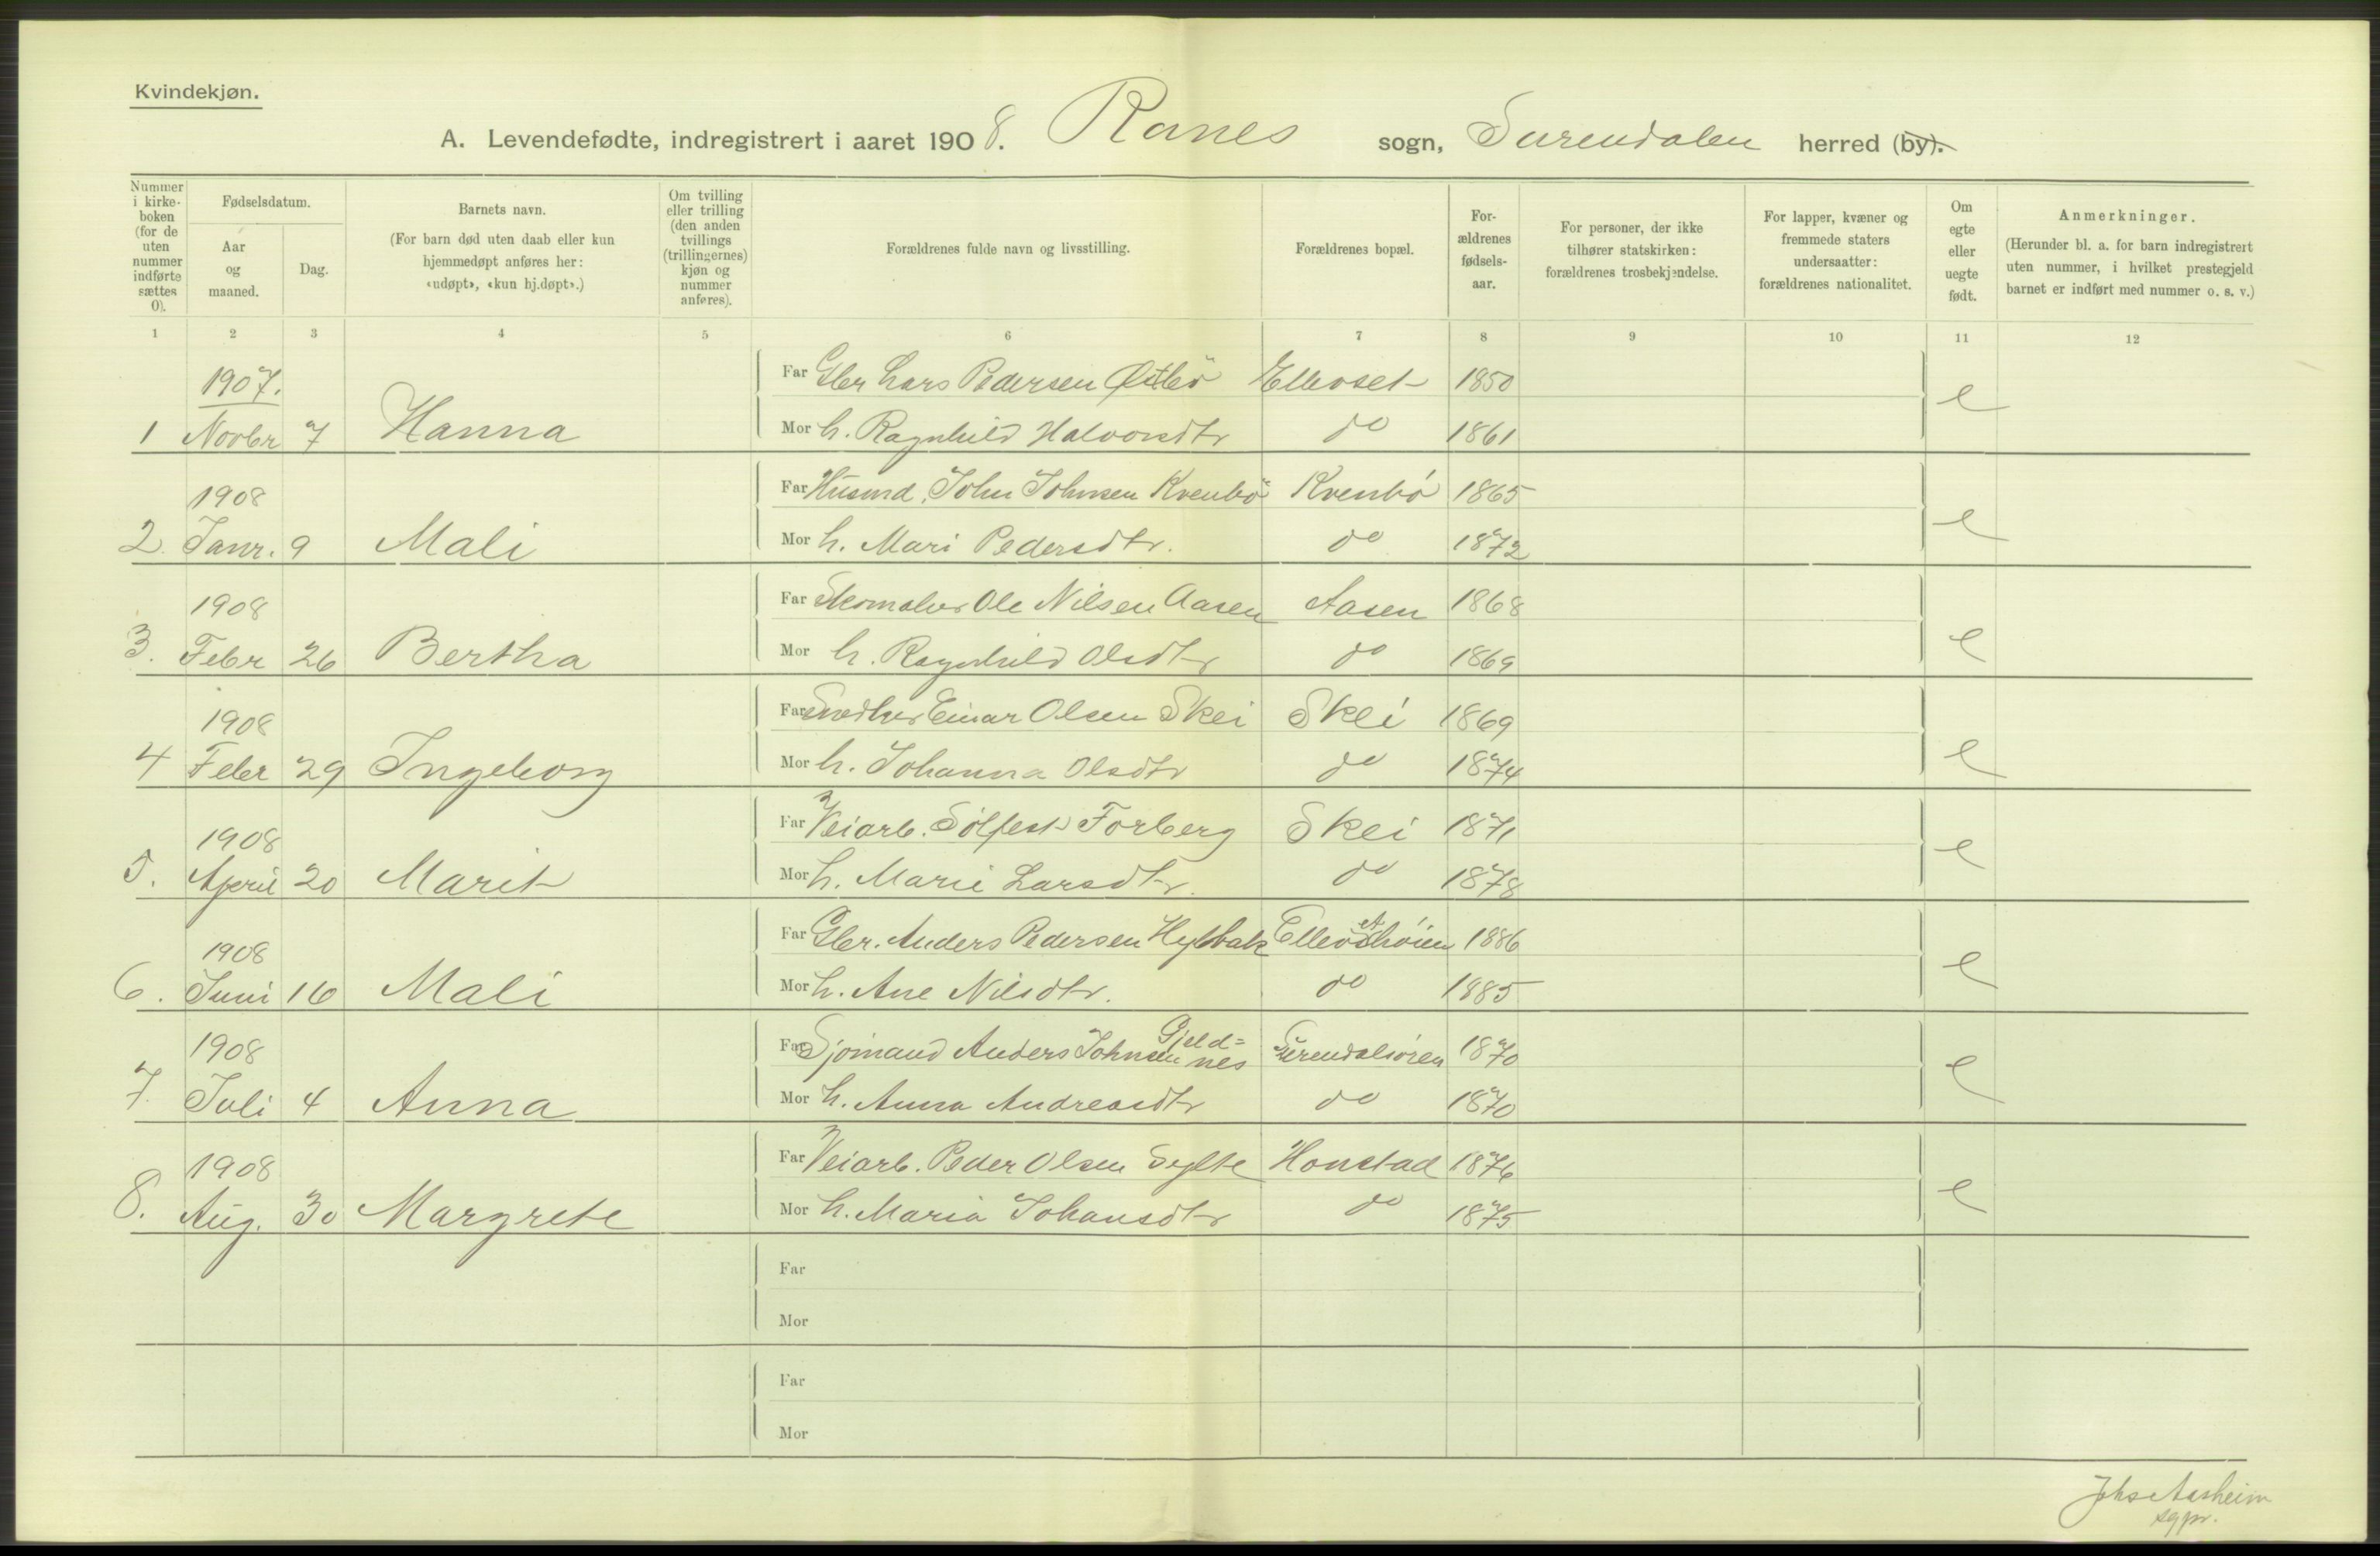 Kvindekjøn.
A. Levendefødte, indregistrert i aaret 1908. Ranes sogn, Surendalen herred (by).
Nummer i kirke-boken (for de uten nummer indførte sættes 0).
Fødselsdatum.
Aar og maaned.
Dag.
Barnets navn.
(For barn død uten daab eller kun hjemmedøpt anføres her: «udøpt», «kun hj.døpt».)
Om tvilling eller trilling (den anden tvillings (trillingernes) kjøn og nummer anføres).
Forældrenes fulde navn og livsstilling.
Forældrenes bopæl.
For-ældrenes fødsels-aar.
For personer, der ikke tilhører statskirken: forældrenes trosbekjendelse.
For lapper, kvæner og fremmede staters undersaatter: forældrenes nationalitet.
Om egte eller uegte født.
Anmerkninger.
(Herunder bl. a. for barn indregistrert uten nummer, i hvilket prestegjeld barnet er indført med nummer o. s. v.)
1 2 3 4 5 6 7 8 9 10 11 12
1907. Far Gbr Lars Pedersen Østbö Ellevset 1850 e
1 Novbr 7 Hanna Mor h. Ragnhild Halvorsdtr do 1861
1908 Far Husmd. John Johnsen Kvenbö Kvenbö 1865 e
2. Janr. 9 Mali Mor h. Mari Pedersdtr. do 1872
1908 Far Skomaker Ole Nilsen Aasen Aasen 1868 e
3. Febr 26 Bertha Mor h. Ragnhild Olsdtr do 1869
1908 Far Snedker Einar Olsen Skei Skei 1869 e
4 Febr 29 Ingeborg Mor h. Johanna Olsdtr do 1874
1908 Far Veiarb. Sölfest Forberg Skei 1871 e
5. April 20 Marit Mor h. Marie Larsdtr. do 1878
1908 Far Gbr. Anders Pedersen Hylbak 1886 e
6. Juni 16 Mali Mor h. Ane Nilsdtr. do 1885
1908 Far Sjömand Anders Johnsen Gjeld=nes Surendalsören 1870 e
7. Juli 4 Anna Mor h. Anna Andreasdtr do 1870
1908 Far Veiarb. Peder Olsen Sylte Honstad 1876 e
8. Aug. 30 Margrete Mor h. Maria Johansdtr do 1875
Far
Mor
Far
Mor
Johs Aasheim
sgpr.